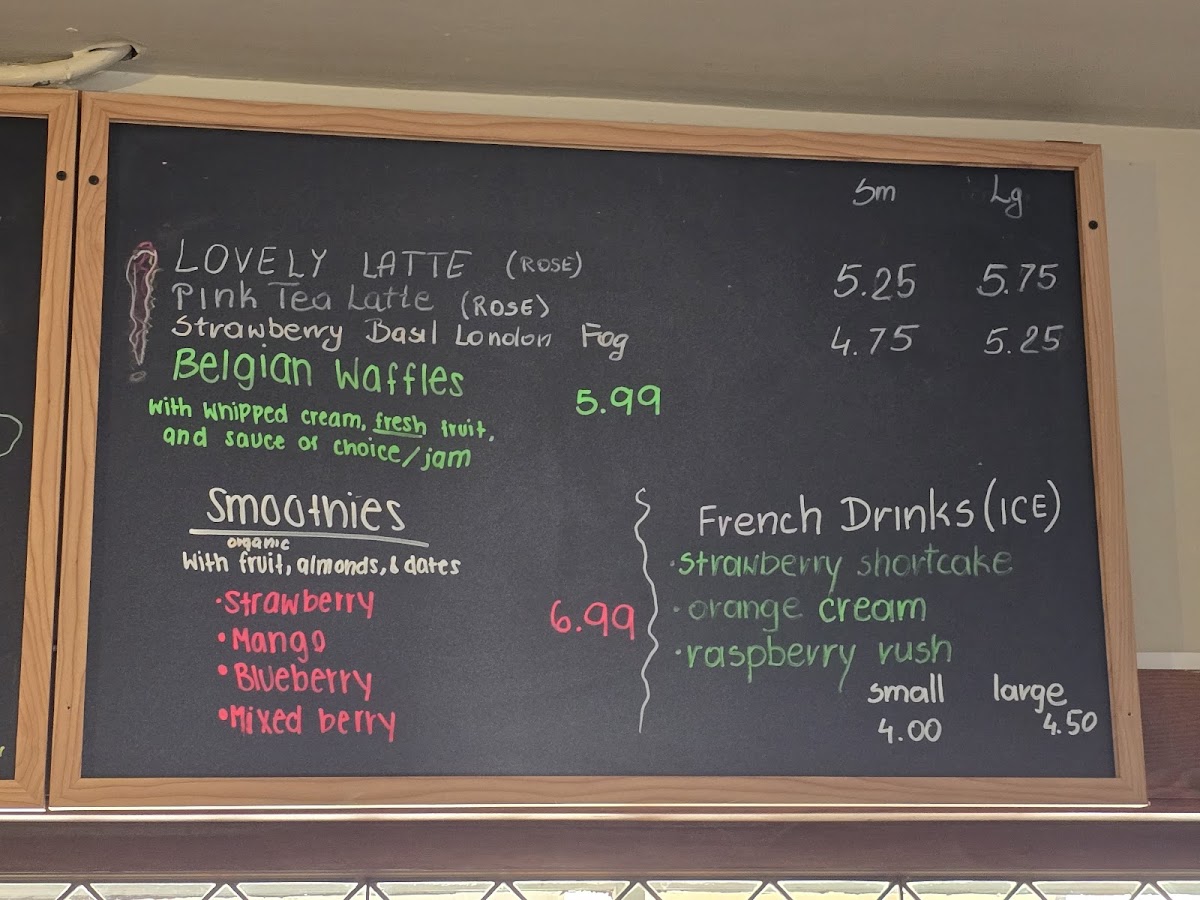 Sm Lg
LOVELY LATTE (ROSE) 5.25 5.75
Pink Tea Latte (ROSE)
Strawberry Basil London Fog 4.75 5.25
Belgian Waffles 5.99
with whipped cream, fresh fruit,
and sauce of choice/jam
Smoothies
organic
with fruit, almonds, & dates
·Strawberry
•Mango
•Blueberry
•Mixed berry
6.99
French Drinks (ICE)
·strawberry shortcake
·orange cream
·raspberry rush
small large
4.00 4.50